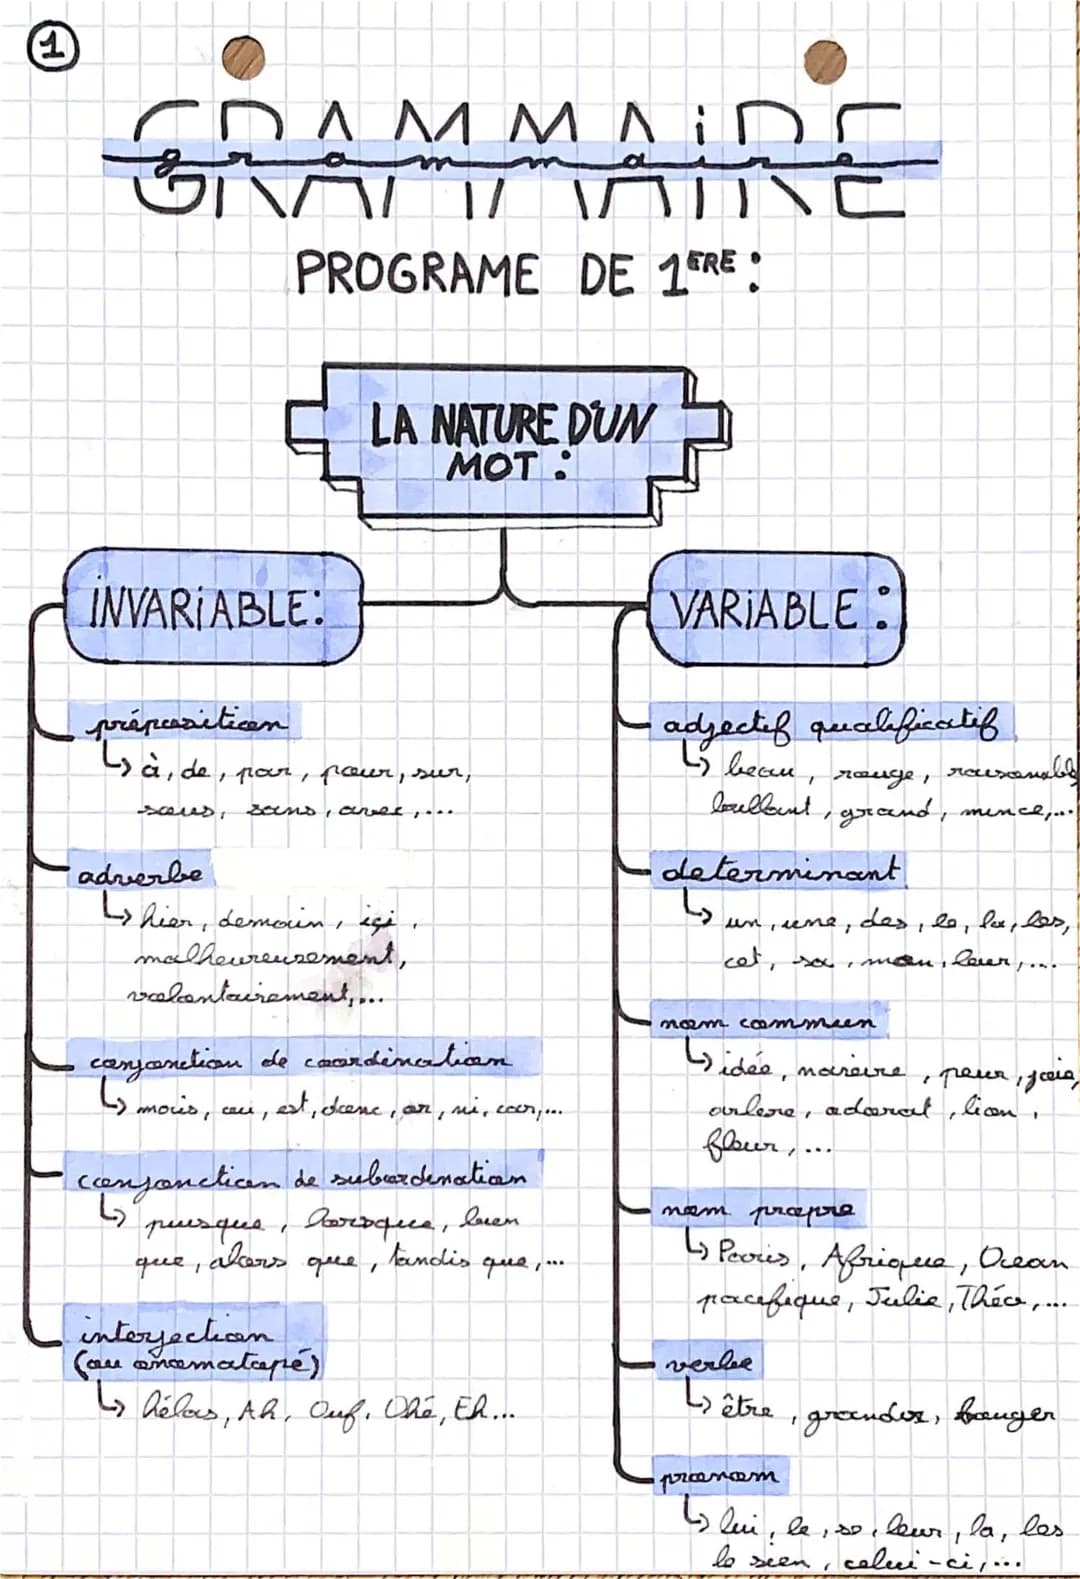 1
GRAMMAIRE
grammaire
PROGRAME DE 1ERE :
LA NATURE D'UN
MOT :
INVARIABLE :
préposition
↳ à, de, par, pour, sur,
sous, sans, avec, ...
adverbe
↳ hier, demain, içi,
malheureusement,
volontairement, ...
conjonction de coordination
↳ mais, ou, est, donc, or, ni, car, ...
conjonction de subordination
↳ puisque, lorsque, bien
que, alors que, tandis que, ...
interjection
(ou onomatopé)
↳ hélas, Ah, Ouf, Ohé, Eh...
VARIABLE :
adjectif qualificatif
↳ beau, rouge, raisonable
brillant, grand, mince, ...
determinant
↳ un, une, des, le, la, les,
cet, sa, mon, leur, ...
nom commun
↳ idée, noirceur, peur, joie,
arbre, adorat, lion,
fleur, ...
nom propre
↳ Paris, Afrique, Ocean
pacifique, Julie, Théo, ...
verbe
↳ être, grandir, bouger
pronom
↳ lui, le, se, leur, la, les
le sien, celui-ci, ...